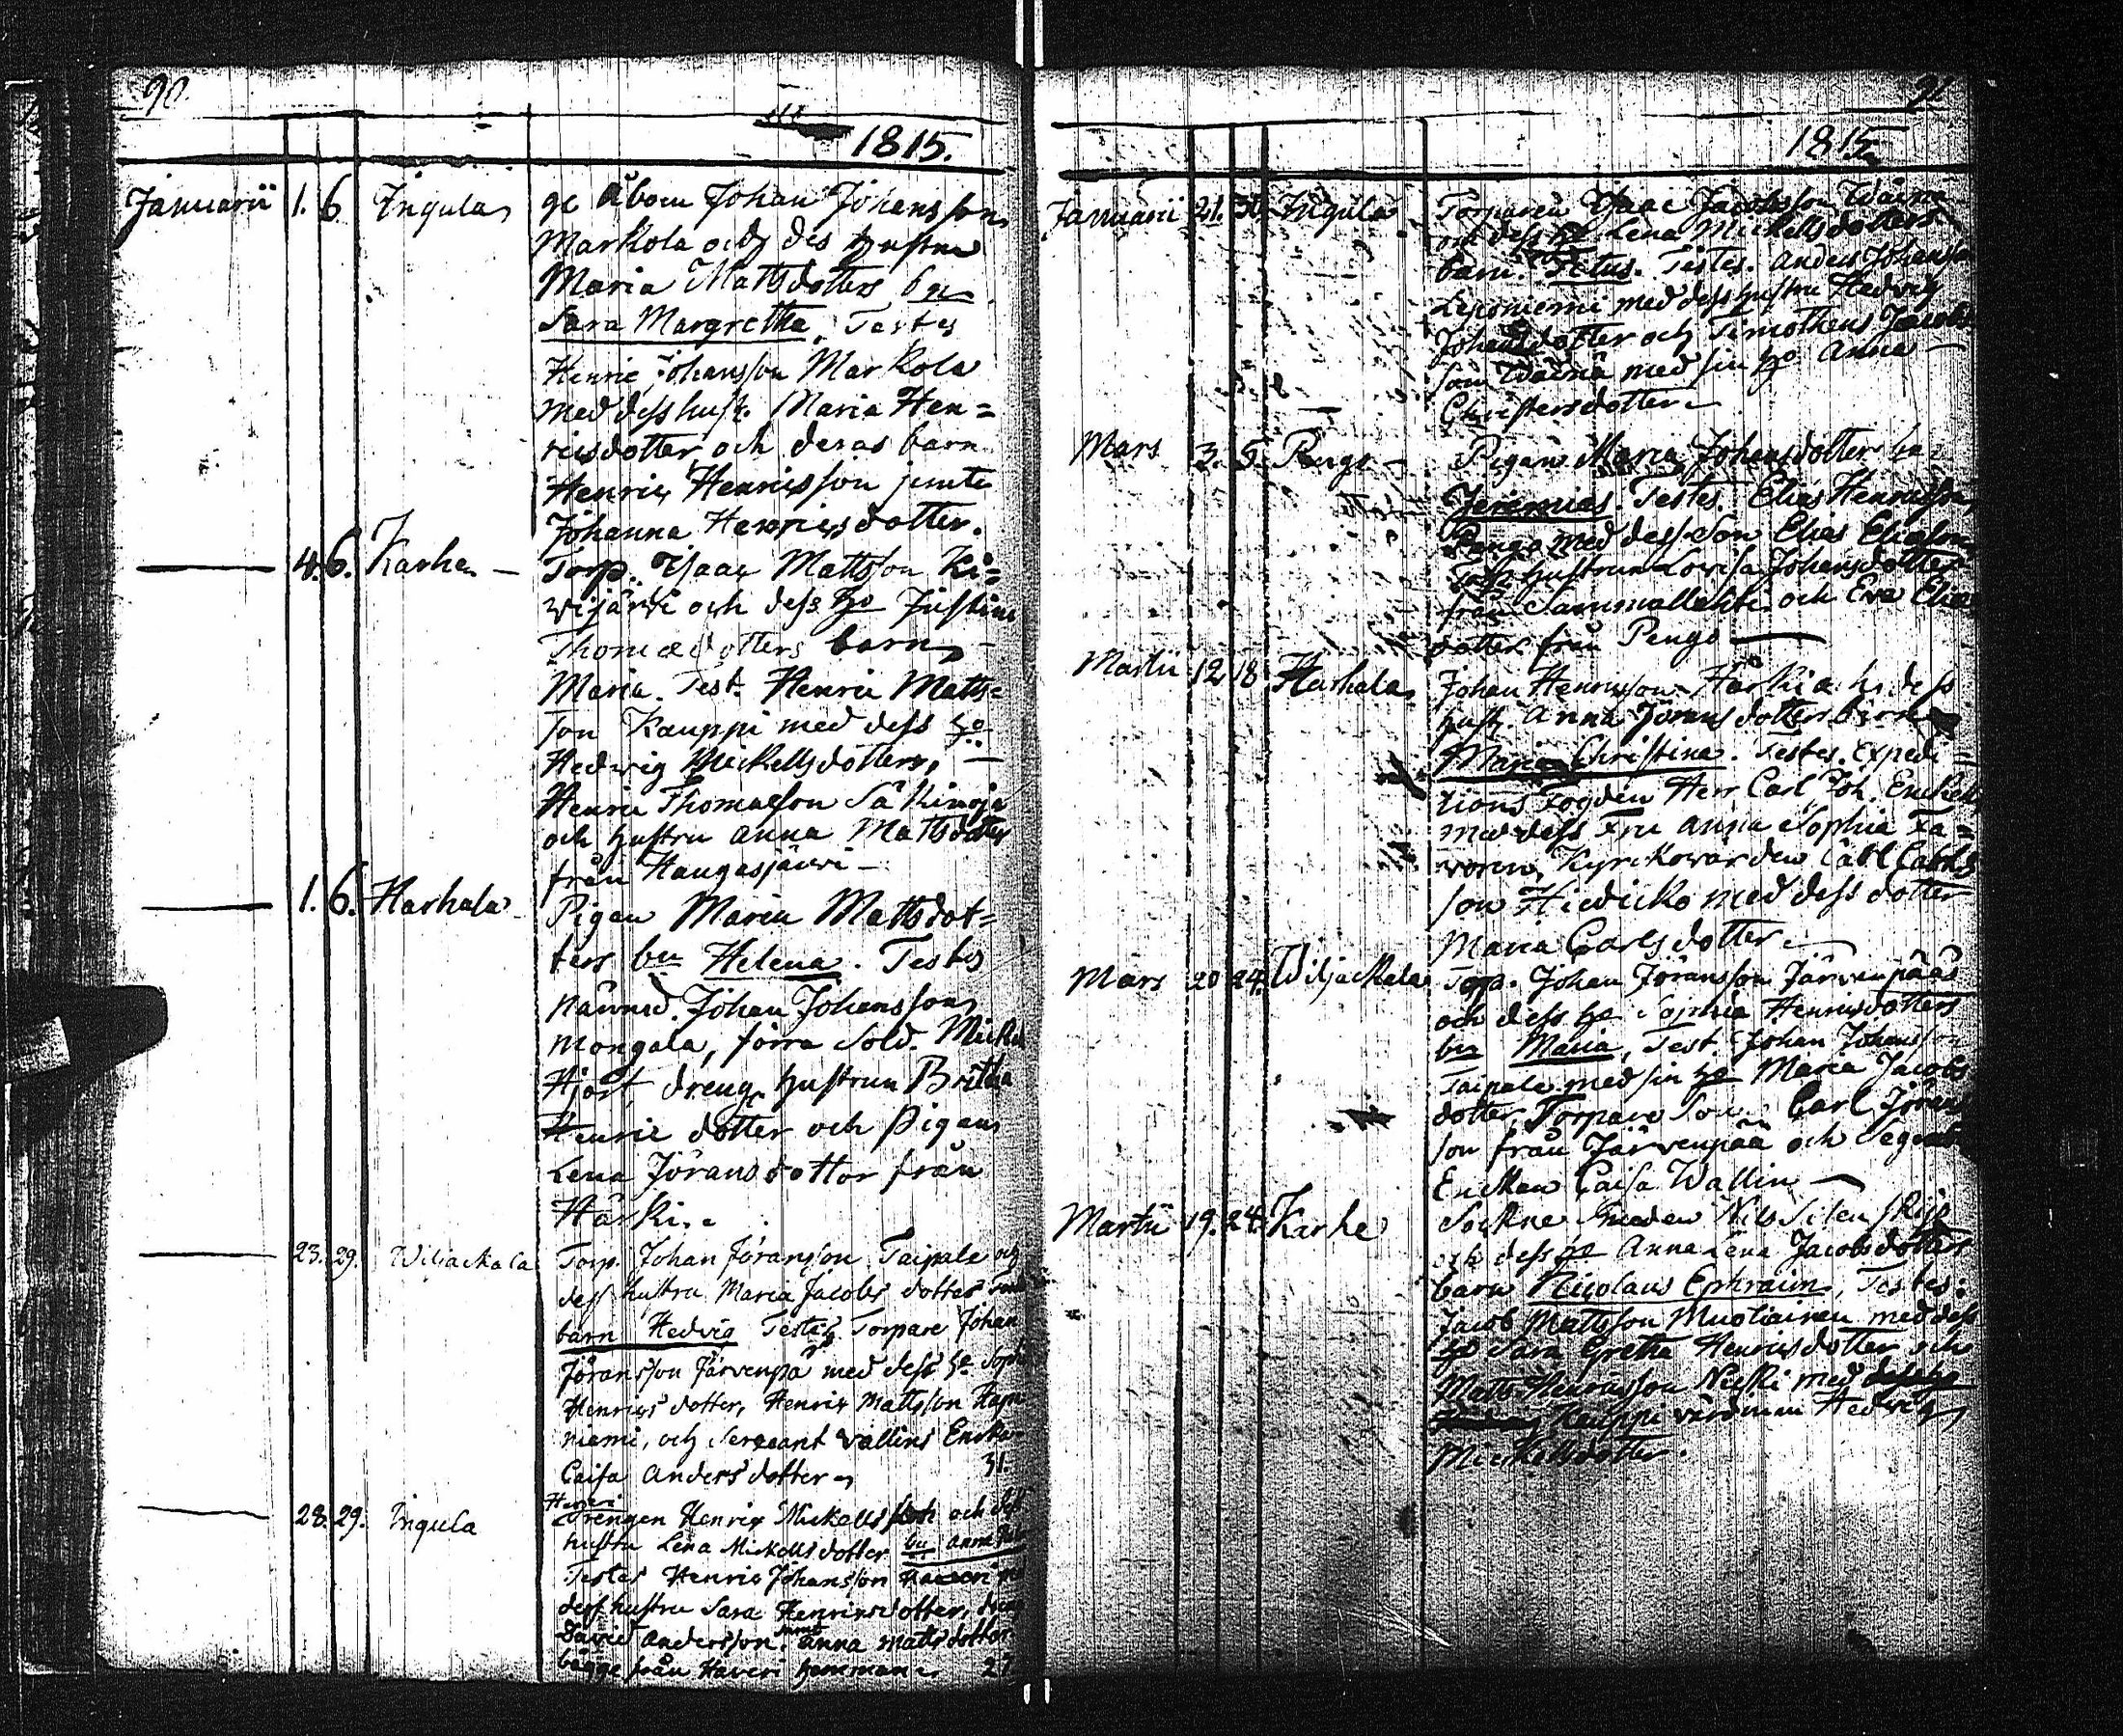 90.
1815.
Januarii 1. 6 Ingula ge Åboen Johan Johansson
Markola och des hustru
Maria Mattsdotters bn
Sara Margretha. Testes
Henric Johansson Markola
med dess hust. Maria Hen=
ricsdotter och deras barn
Henric Henricsson jemte
Johanna Henricsdotter.
4. 6. Karhe — Torp. Isaac Mattsson Ki=
wijärvi och dess ho Justina
Thomædotters barn
Maria. Test. Henric Matts=
son Kauppi med dess ho
Hedwig Mickellsdotter, —
Henric Thomasson
och hustru Anna Mattsdotter
från Haugasjärvi —
1. 6. Harhala Pigan Maria Mattsdot=
ters bn Helena. Testes
Nämnd. Johan Johansson
Mongala, förra Sold. Mickel
Hjort, dreng hustrun Britha
Henric dotter och Pigan
Lena Jöransdotter från
Härki.
23. 29. Wiljackala Torp. Johan Jöransson Taipale och
dess hustru Maria Jacobs dotter
barn Hedvig Testes Torpare Johan
Jöransson Järvenpä med dess ho Soph
Henrics dotter, Henric Mattsson
niemi, och Sergeant Vallins Enska
Caisa Anders dotter 31.
28. 29. Ingula Drengen Henric Mickellsson och dess
hustru Lena Mickells dotter bn Anna
Testes Henric Johansson Haveri
dess hustru Sara Henricsdotter,
David Andersson Anna Matts dotter
bägge från Haveri hemman 27.
91
1815
Januarii 21. 30. Ingula Torparen Isaac Jacobsson Wäinä
och dess ho Lena Mickellsdotters
barn. Testes. Anders Johansson
Leponiemi med dess hustru Hedvig
Johansdotter och Timotheus Jacobs
son Wäinä med sin ho Anna —
Christersdotter
Mars 3. 5. Pengo — Pigan Maria Johansdotter
Jeremias. Testes. Elias Henricsson
Pengo med dess Son Elias Eliasson
hustrun Lovisa Johansdotter
från Sammallahti och Eva Elias
dotter från Pengo —
Martii 12 18 Harhala Johan Henricsson Härki dess
hust. Anna Jörans dotters barn
Maria Christina. Testes. Expedi=
tions Fogden Herr Carl Joh. Enckell
med dess Fru Anna Sophia Fa=
voren, Kyrckowärden Carl Carls
son Hiedicko med dess dotter
Maria Carlsdotter.
Mars 20 24. Wiljackala Torp. Johan Jöransson Järvenpääs
och dess ho Sophia Henricsdotters
bn Maria, Test. Johan Johansson
Taipale med sin ho Maria Jacobs
dotter, Torpare Son Carl Jörans
son från Järvenpää och
Enckan Caisa Wallin —
Martii 19. 24. Karhe Sockne Smeden Nils Silen
och dess ho Anna Lena Jacobsdotters
barn Nicolaus Ephraim, Testes:
Jacob Mattsson Muotiainen med dess
ho Sara Gretha Henricsdotter och
Matts Henricsson Nieski med dess ho
Kauppi värdinnan Hedvig
Mickellsdotter.